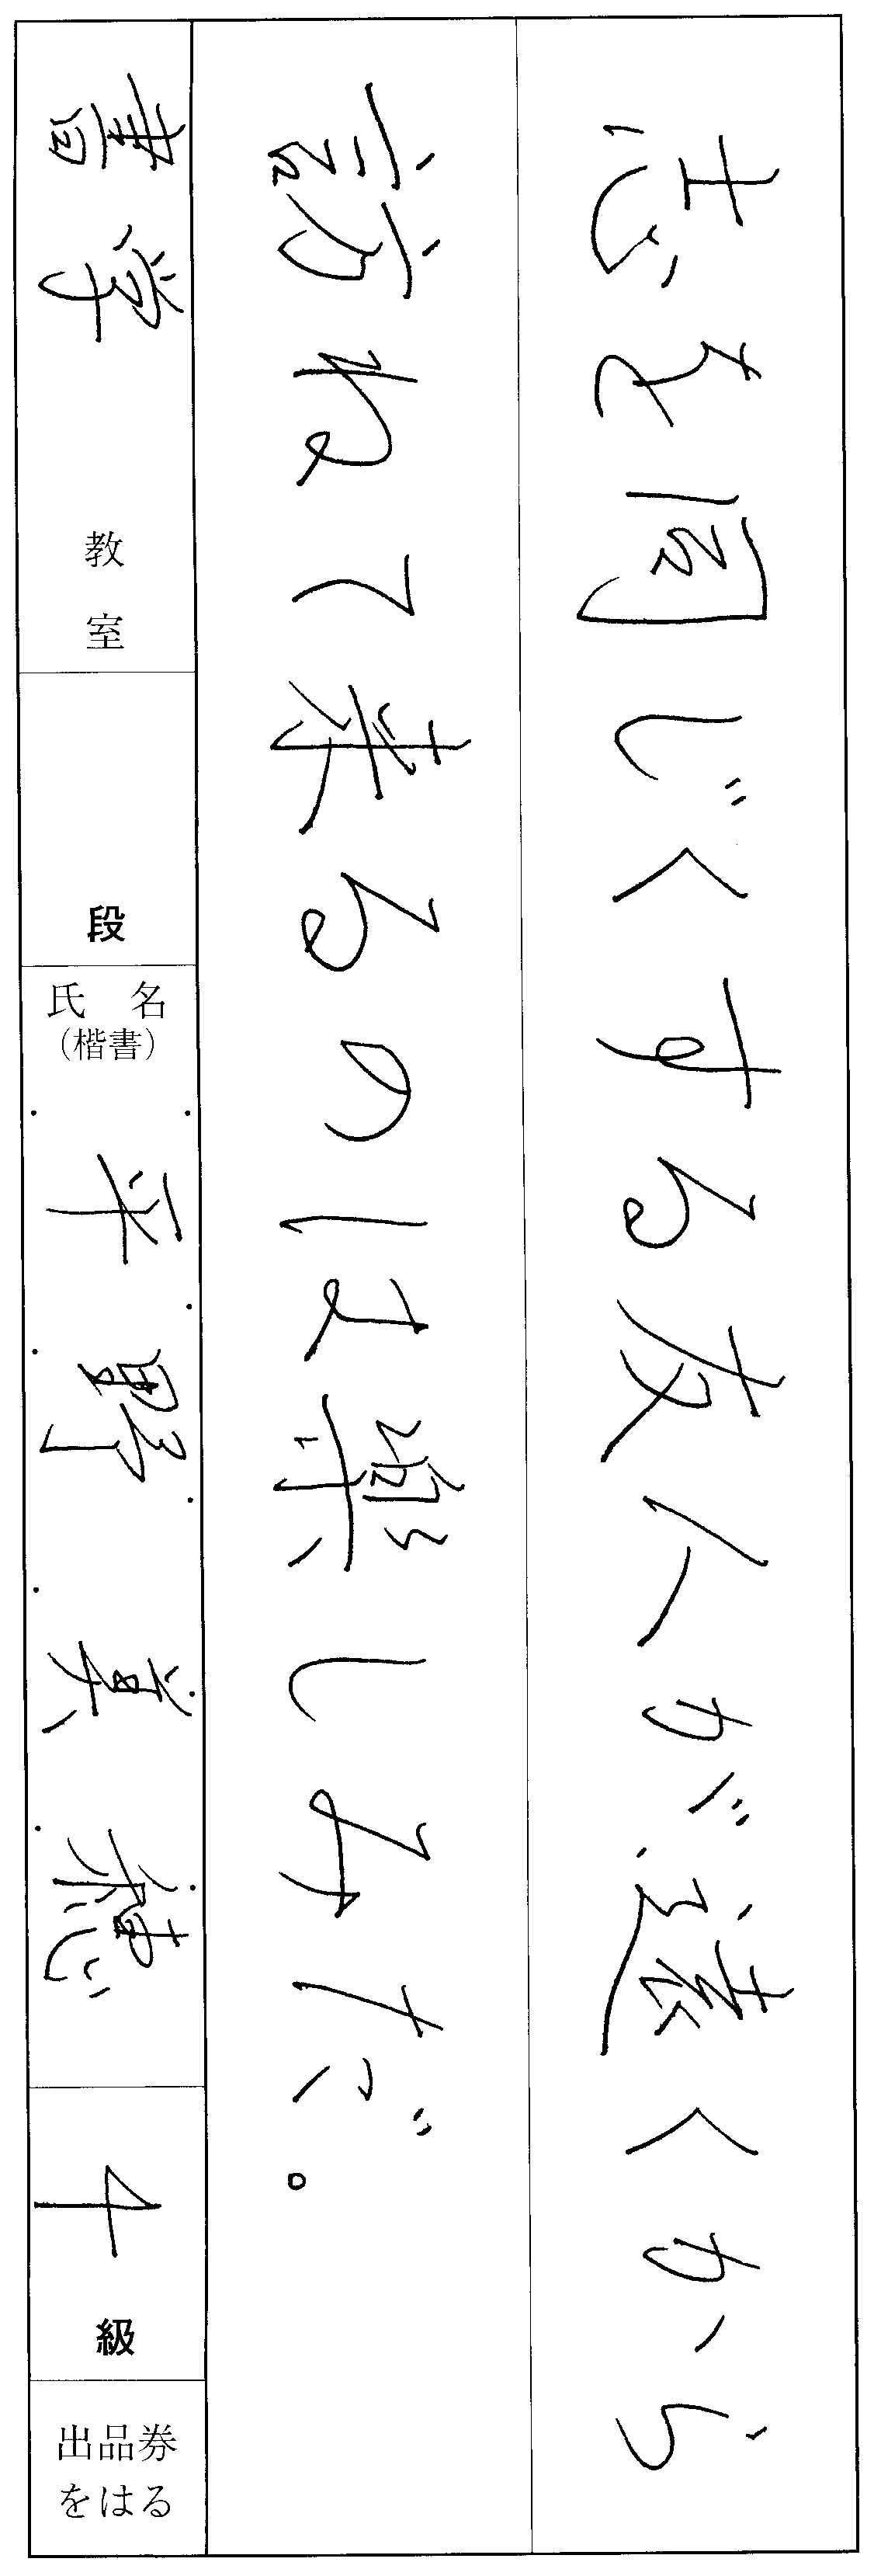 志を同じくする友人が、遠くから
訪ねて来るのは楽しみだ。
書学
教室
段
氏名
(楷書)
平野 真穂
十
級
出品券
をはる